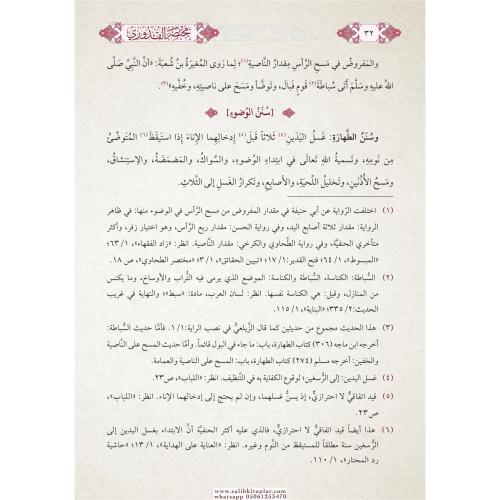 ٣٢
مختصر القدوري
والمَفروضُ في مَسحِ الرَّأسِ مِقدارُ النَّاصيةِ(١)؛ لِما رَوى المُغيرَةُ بنُ شُعبَةَ: «أنَّ النَّبِيَّ صَلَّى
اللهُ عليهِ وسَلَّمَ أتَى سُباطَةَ(٢) قَومٍ فَبالَ، وتَوضَّأَ ومَسَحَ على ناصِيَتِهِ، وخُفَّيهِ»(٣).
[سُنَنُ الوُضوءِ]
وسُنَنُ الطَّهارَةِ: غَسلُ اليَدَينِ(٤) ثَلاثاً قَبلَ(٥) إدخالِهِما الإناءَ إذا استَيقَظَ(٦) المُتَوضِّئُ
مِن نَومِهِ، وتَسميةُ اللهِ تَعالَى في ابتِداءِ الوُضوءِ، والسِّواكُ، والمَضمَضَةُ، والاِستِنشاقُ،
ومَسحُ الأُذُنَينِ، وتَخليلُ اللِّحيَةِ، والأصابِعِ، وتَكرارُ الغَسلِ إلى الثَّلاثِ.
(١) اختلفت الرّواية عن أبي حنيفة في مقدار المفروض من مسح الرَّأس في الوضوء منها: في ظاهر
الرواية: مقدار ثلاثة أصابع اليد، وفي رواية الحسن: مقدار ربع الرَّأس، وهو اختيار زفر، وأكثر
متأخري الحنفيَّة، وفي رواية الطَّحاوي والكرخي: مقدار النَّاصية. انظر: «زاد الفقهاء»، ١/ ٦٣؛
«المبسوط»، ١/ ٦٤؛ فتح القدير: ١/ ١٧؛ «تبيين الحقائق»، ١/ ٣؛ «مختصر الطحاوي»، ص ١٨.
(٢) السُّباطة: الكناسة، السُّباطة والكناسة: الموضع الذي يرمى فيه التُّراب والأوساخ، وما يكنس
من المنازل، وقيل: هي الكناسة نفسها. انظر: لسان العرب، مادة: «سبط»؛ والنهاية في غريب
الحديث: ٢/ ٣٣٥؛ «البناية»، ١/ ١١٥.
(٣) هذا الحديث مجموع من حديثين كما قال الزَّيلعيُّ في نصب الراية: ١/ ١. فأمَّا حديث السُّباطة:
أخرجه ابن ماجه (٣٠٦) كتاب الطهارة، باب: ما جاء في البول قائماً. وأمَّا حديث المسح على النَّاصية
والخفين: أخرجه مسلم (٢٧٤) كتاب الطهارة، باب: المسح على الناصية والعمامة.
(٤) غسل اليدين: إلى الرُّسغين؛ لوقوع الكفاية به في التَّنظيف. انظر: «اللباب»، ص ٢٣.
(٥) قيد اتفاقيٌّ لا احترازيٌّ، إذ يسنُّ غسلهما، وإن لم يحتج إلى إدخالهما الإناء. انظر: «اللباب»،
ص ٢٣.
(٦) هذا أيضاً قيد اتفاقيٌّ لا احترازيٌّ، فالذي عليه أكثر الحنفيَّة أنَّ الابتداء بغسل اليدين إلى
الرُّسغين سنة مطلقاً للمستيقظ من النَّوم وغيره. انظر: «العناية على الهداية»، ١/ ١٣؛ «حاشية
رد المحتار»، ١/ ١١٠.
www.salihkitaplar.com
whatsapp 05061255470